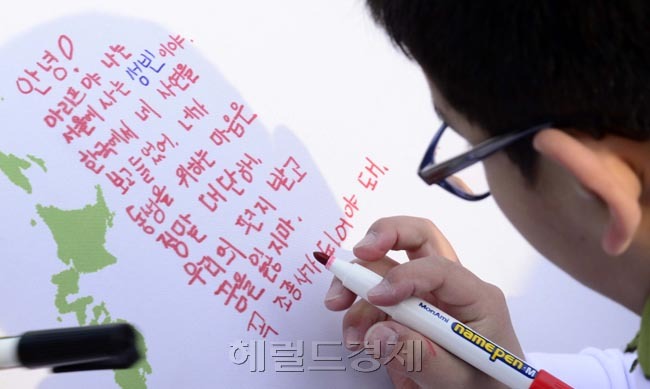 안녕!
아리프야 나는
서울에 사는 성빈이야.
한국에서 네 사연을
보고 들었어, 네가
동생을 위하는 마음은
정말 대단해.
우리의 편지 받고
꿈을 잃지마.
꼭 조종사가 되어야 돼.
MonAmi namepen M
헤럴드경제